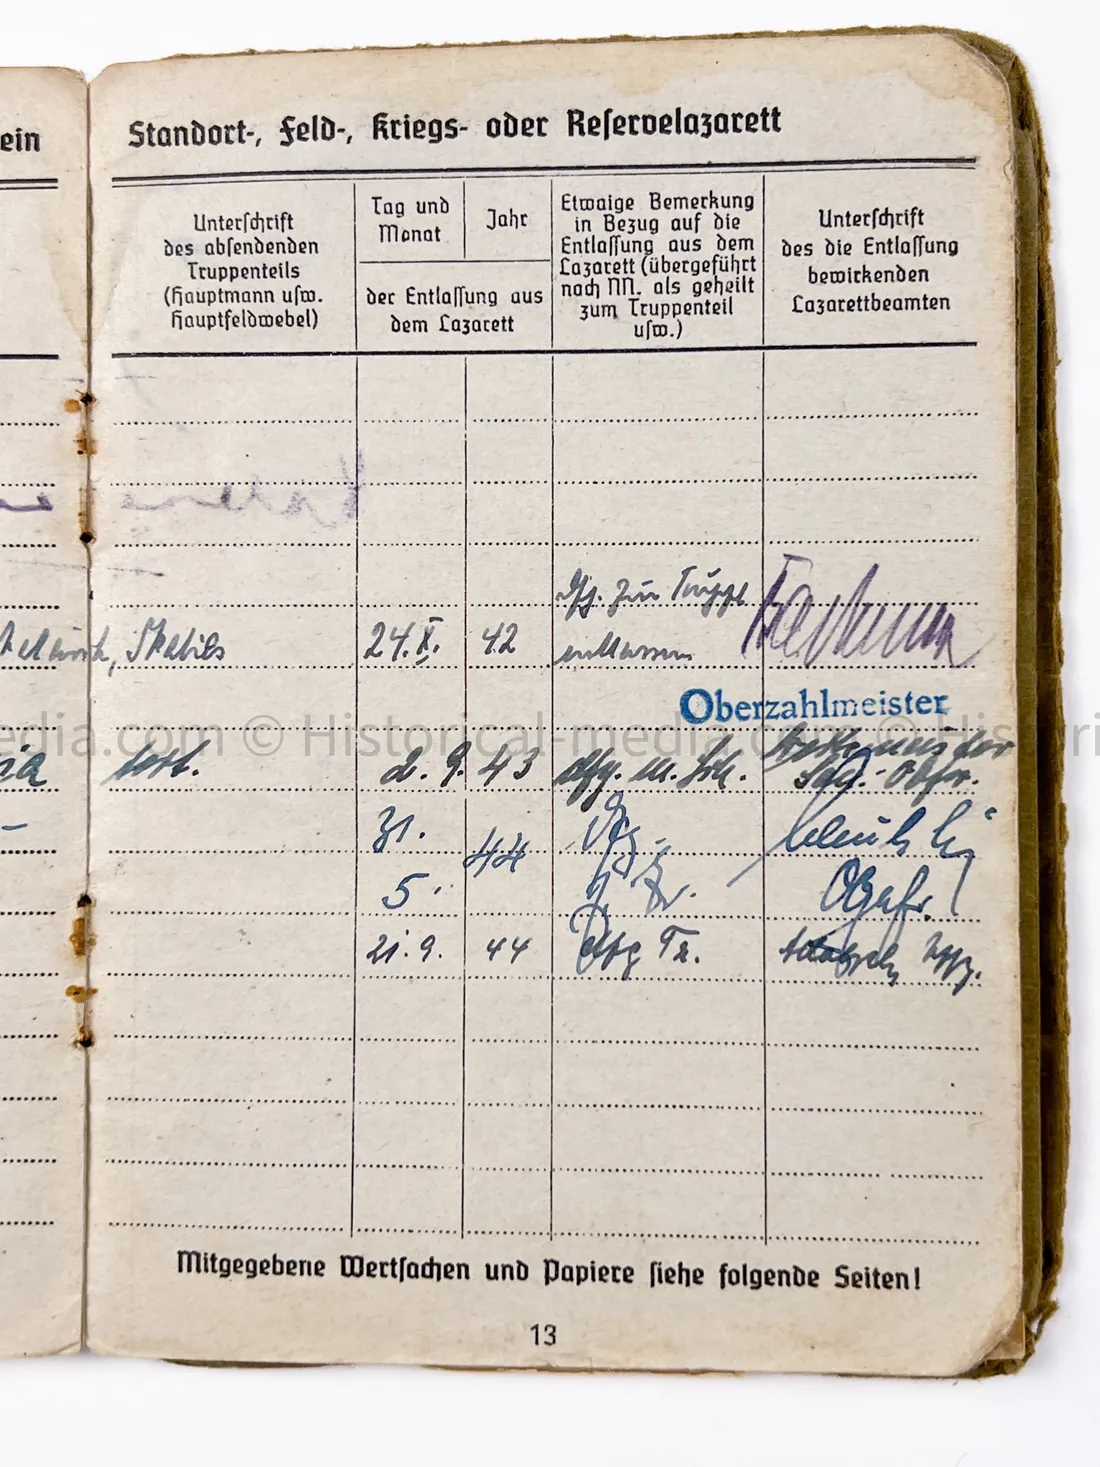 ein
Standort-, Feld-, Kriegs- oder Reservelazarett
Unterschrift
des absendenden
Truppenteils
(Hauptmann usw.
Hauptfeldwebel)
Tag und
Monat
Jahr
der Entlassung aus
dem Lazarett
Etwaige Bemerkung
in Bezug auf die
Entlassung aus dem
Lazarett (übergeführt
nach NN. als geheilt
zum Truppenteil
usw.)
Unterschrift
des die Entlassung
bewirkenden
Lazarettbeamten
dfg. zur Truppe
24. X. 42 entlassen
Oberzahlmeister
edia.com © Historical-media.com © Histori
2. 9. 43 dfg.
31.
44
5.
Ogefr.
21. 9. 44 dfg Tr. Uffz.
Mitgegebene Wertsachen und Papiere siehe folgende Seiten!
13